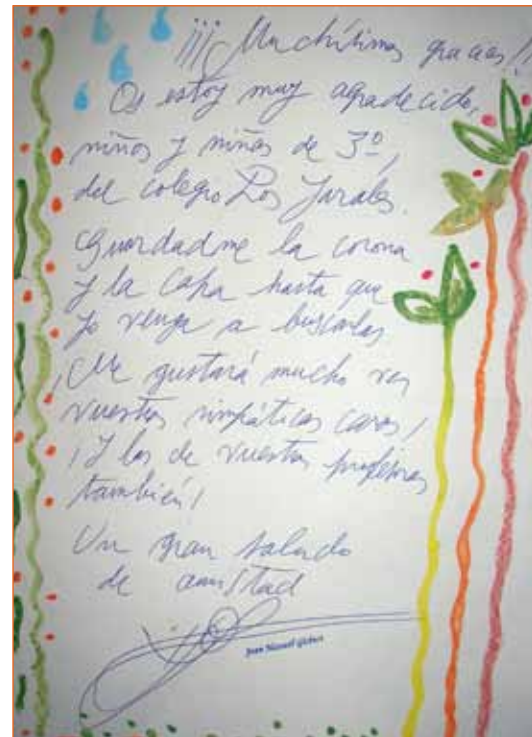 ¡¡¡Muchísimas gracias!!
Os estoy muy agradecido,
niños y niñas de 3º,
del colegio Los Jarales.
Guardadme la corona
y la capa hasta que
yo venga a buscarlas
¡Me gustará mucho ver
vuestras simpáticas caras,
¡y las de vuestras profesoras
también!
Un gran saludo
de amistad
Joan Manuel Gisbert